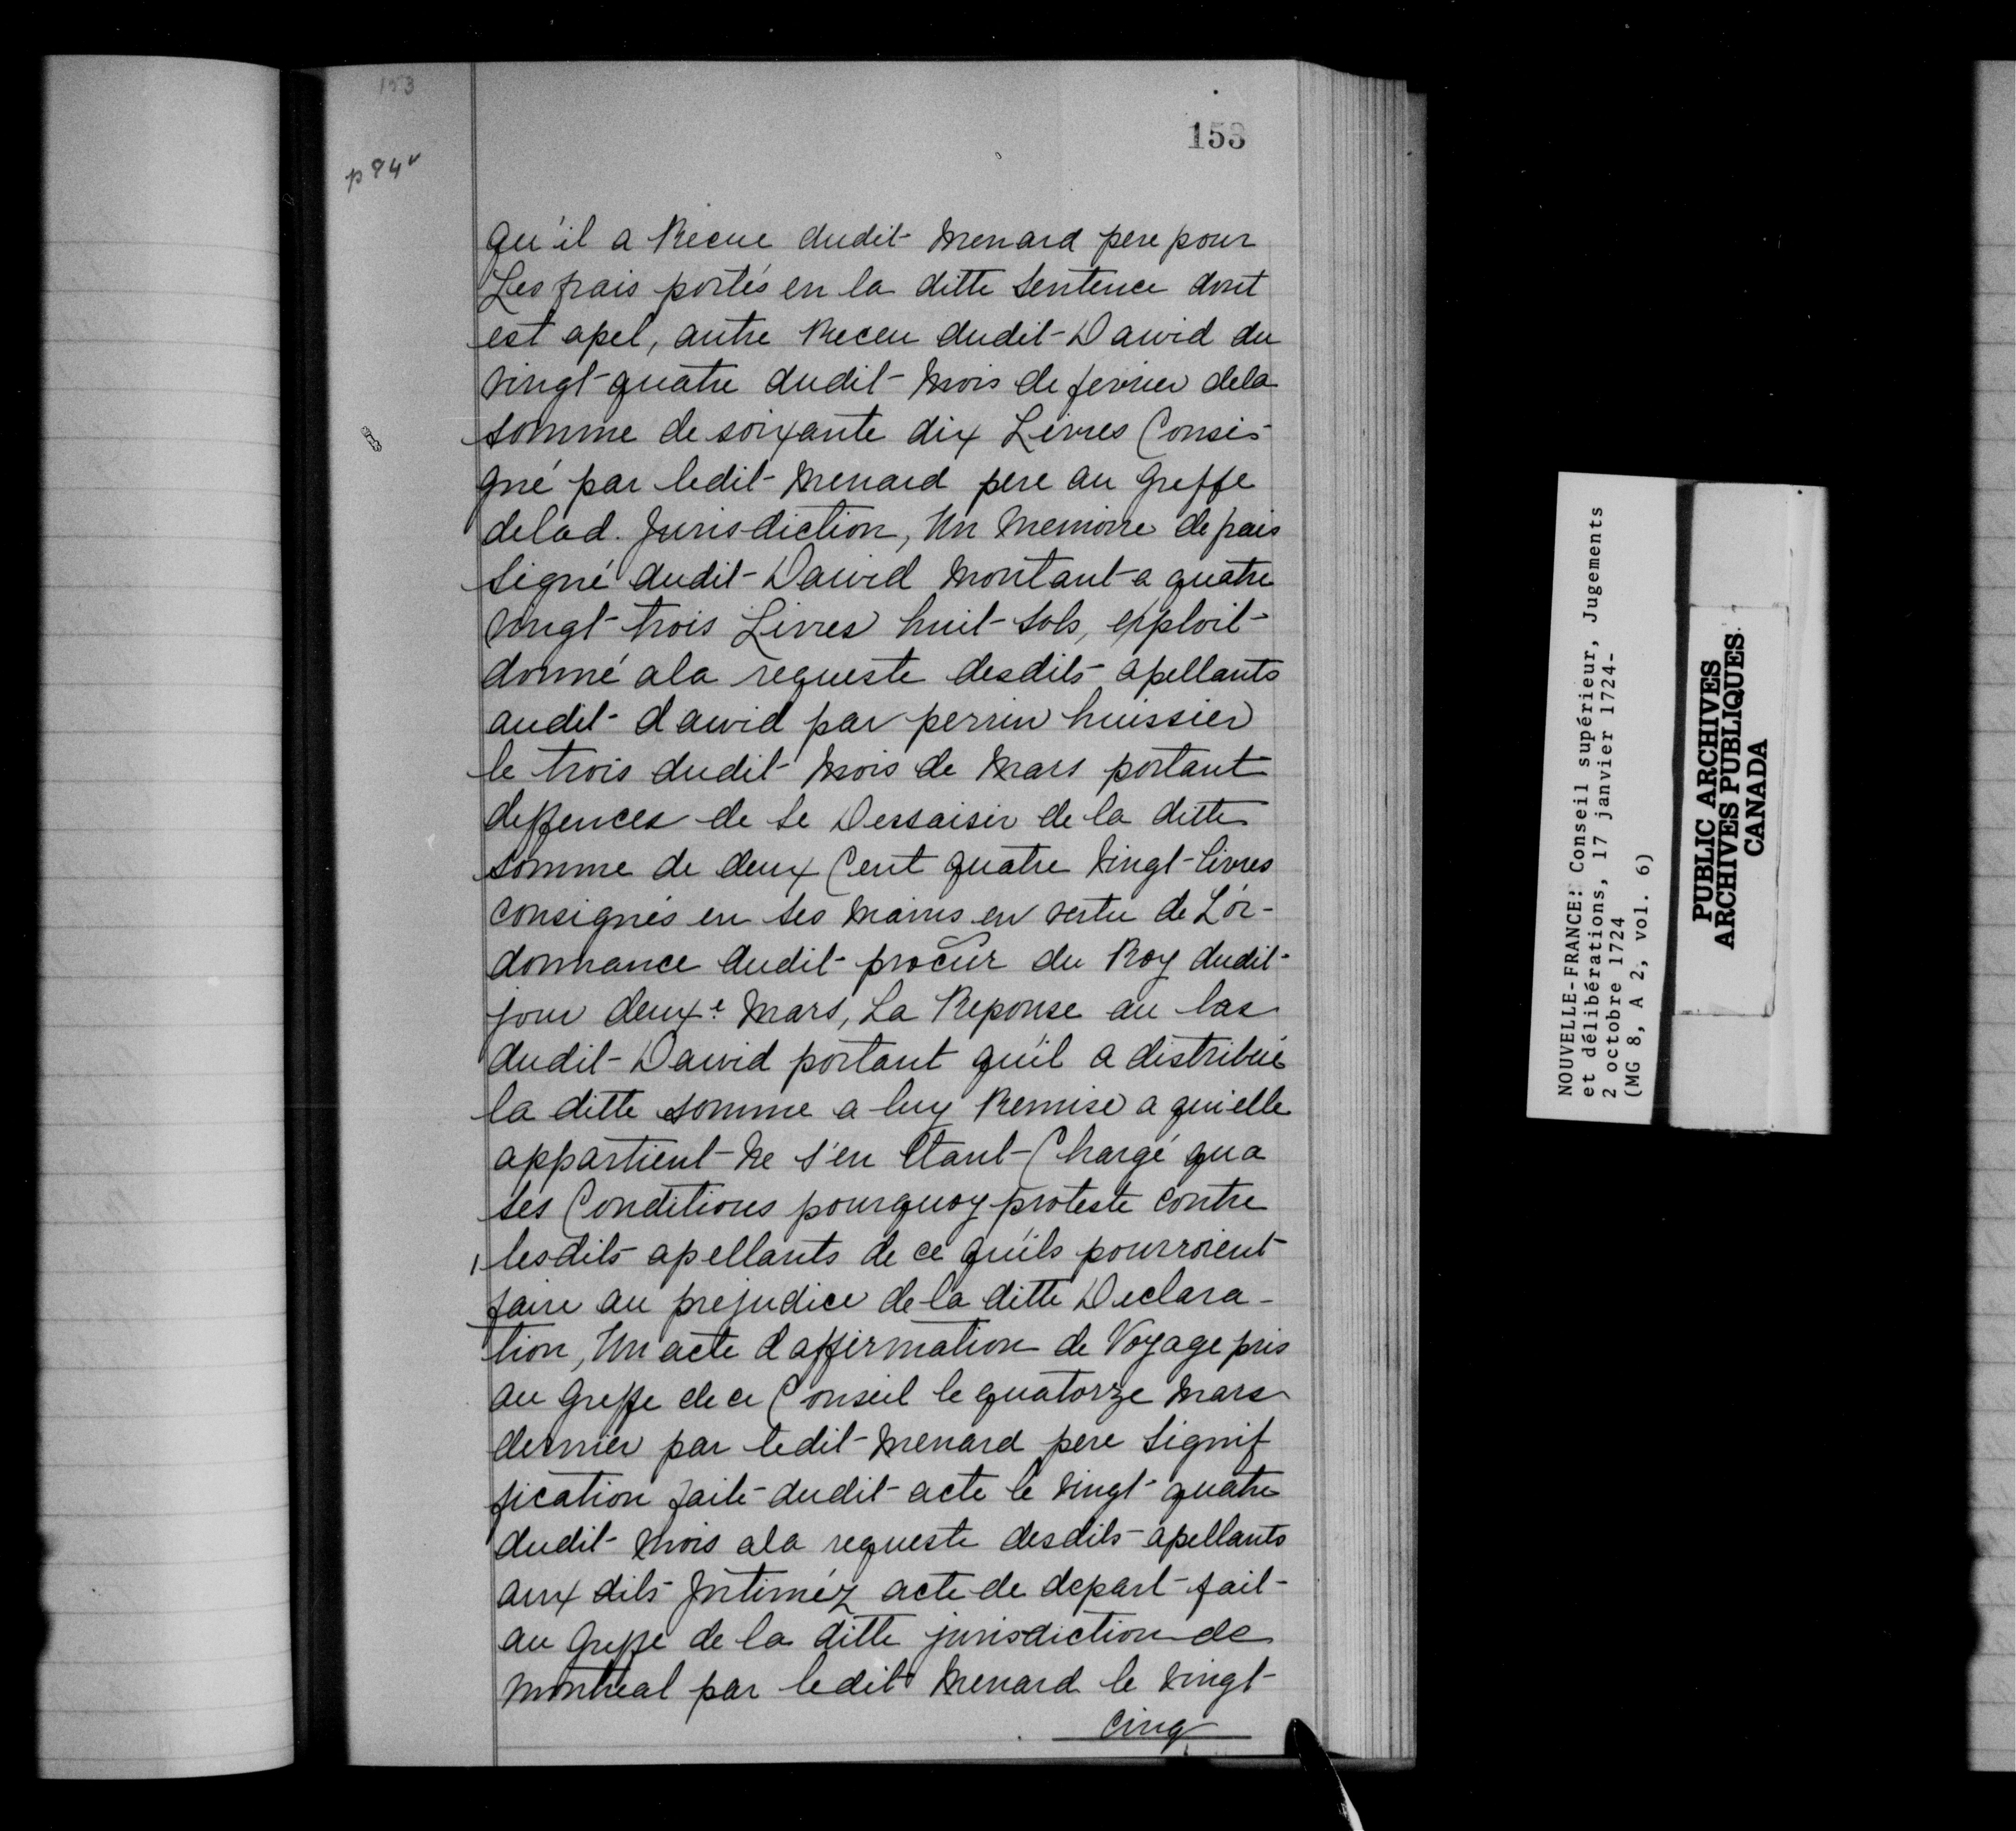 153
153
p 84v
qu'il a Receue dudit Menard pere pour
Les frais portés en la ditte Sentence dont
est apel, autre Receu dudit David du
vingt quatre dudit mois de fevrier dela
somme de soixante dix Livres Consi-
gné par ledit Menard pere au Greffe
delad. Jurisdiction, Un Memoire de frais
Signé dudit David montant a quatre
vingt trois Livres huit sols, exploit
donné ala requeste desdits apellants
audit david par perrin huissier
le trois dudit mois de Mars portant
deffences de se Dessaisir de la ditte
somme de deux Cent quatre vingt Livres
consignés en ses mains en vertu de L'or-
donnance dudit procur du Roy dudit
jour deuxe Mars, La Reponse au bas
dudit David portant qu'il a distribué
la ditte somme a luy Remise a qui elle
appartient Ne s'en Etant Chargé qua
ses Conditions pourquoy proteste contre
lesdits apellants de ce qu'ils pourroient
faire au prejudice de la ditte Declara-
tion, Un acte d affirmation de Voyage pris
au greffe de ce Conseil le quatorze Mars
dernier par ledit Menard pere Signif
fication faite dudit acte le vingt quatre
dudit mois ala requeste desdits apellants
aux dits Intiméz acte de depart fait
au Greffe de la ditte jurisdiction de
Montreal par ledit Menard le vingt
cinq
NOUVELLE-FRANCE: Conseil supérieur, Jugements
et délibérations, 17 janvier 1724-
2 octobre 1724
(MG 8, A 2, vol. 6)
PUBLIC ARCHIVES
ARCHIVES PUBLIQUES
CANADA